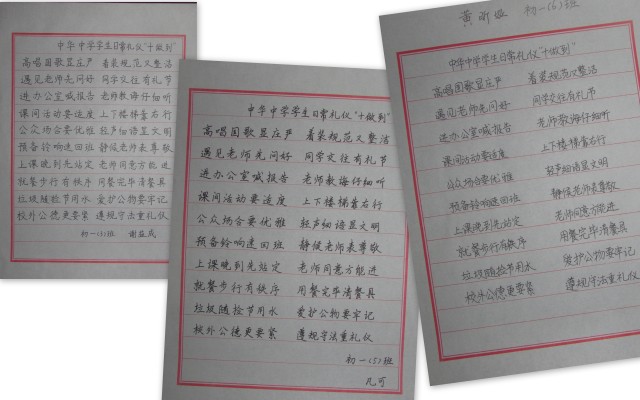 中华中学学生日常礼仪"十做到"
高唱国歌显庄严 着装规范又整洁
遇见老师先问好 同学交往有礼节
进办公室喊报告 老师教诲仔细听
课间活动要适度 上下楼梯靠右行
公众场合要优雅 轻声细语显文明
预备铃响速回班 静候老师表尊敬
上课晚到先站定 老师同意方能进
就餐步行有秩序 用餐完毕清餐具
垃圾随捡节用水 爱护公物要牢记
校外公德更要紧 遵规守法重礼仪
初一(5)班
中华中学学生日常礼仪"十做到"
高唱国歌显庄严 着装规范又整洁
遇见老师先问好 同学交往有礼节
进办公室喊报告 老师教诲仔细听
课间活动要适度 上下楼梯靠右行
公众场合要优雅 轻声细语显文明
预备铃响速回班 静候老师表尊敬
上课晚到先站定 老师同意方能进
就餐步行有秩序 用餐完毕清餐具
垃圾随捡节用水 爱护公物要牢记
校外公德更要紧 遵规守法重礼仪
初一(5)班
凡可
初一(6)班
中华中学学生日常礼仪"十做到"
高唱国歌显庄严 着装规范又整洁
遇见老师先问好 同学交往有礼节
进办公室喊报告 老师教诲仔细听
课间活动要适度 上下楼梯靠右行
公众场合要优雅 轻声细语显文明
预备铃响速回班 静候老师表尊敬
上课晚到先站定 老师同意方能进
就餐步行有秩序 用餐完毕清餐具
垃圾随捡节用水 爱护公物要牢记
校外公德更要紧 遵规守法重礼仪